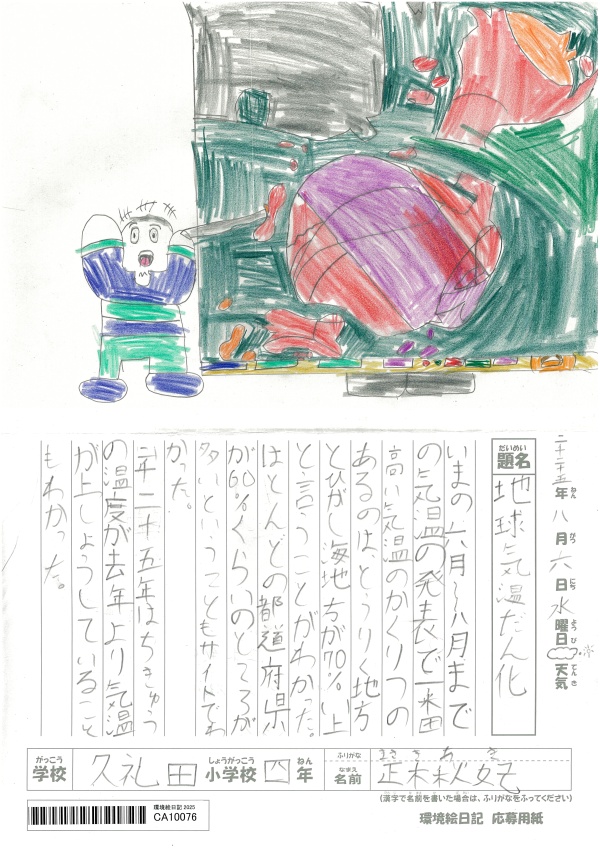 二千二十五年八月六日水曜日 天気
ねん がつ にち ようび てんき
だいめい
題名 地球気温だん化
いまの六月〜八月まで
の気温の発表で一番
高い気温のかくりつの
あるのは、とうりく地方
とひがし海地方が70%い上
と言うことがわかった。
ほとんどの都道府県
が60%くらいのところが
多いということもサイトでわ
かった。
二千二十五年はちきゅう
の温度が去年より気温
が上しょうしていること
もわかった。
がっこう しょうがっこう ねん
学校 久礼田 小学校 四 年
ふりがな まさき あき
なまえ
名前 正木秋妃
(漢字で名前を書いた場合は、ふりがなをふってください)
環境絵日記 2025
CA10076
環境絵日記 応募用紙